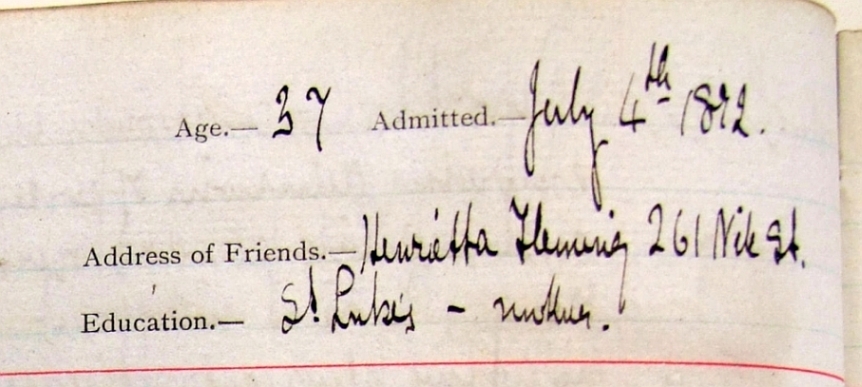 Age.— 37 Admitted.— July 4th 1892.
Address of Friends.— Henrietta Fleming 261 Nile St.
Education.— St. Luke's – mother.